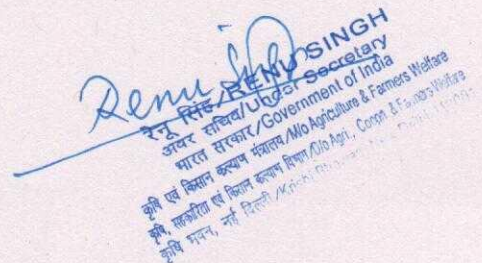 Renu Singh
रेनू सिंह/RENU SINGH
अवर सचिव/Under Secretary
भारत सरकार/Government of India
कृषि एवं किसान कल्याण मंत्रालय/M/o Agriculture & Farmers Welfare
कृषि, सहकारिता एवं किसान कल्याण विभाग/D/o Agri., Coopn. & Farmers Welfare
कृषि भवन, नई दिल्ली/Krishi Bhawan, New Delhi